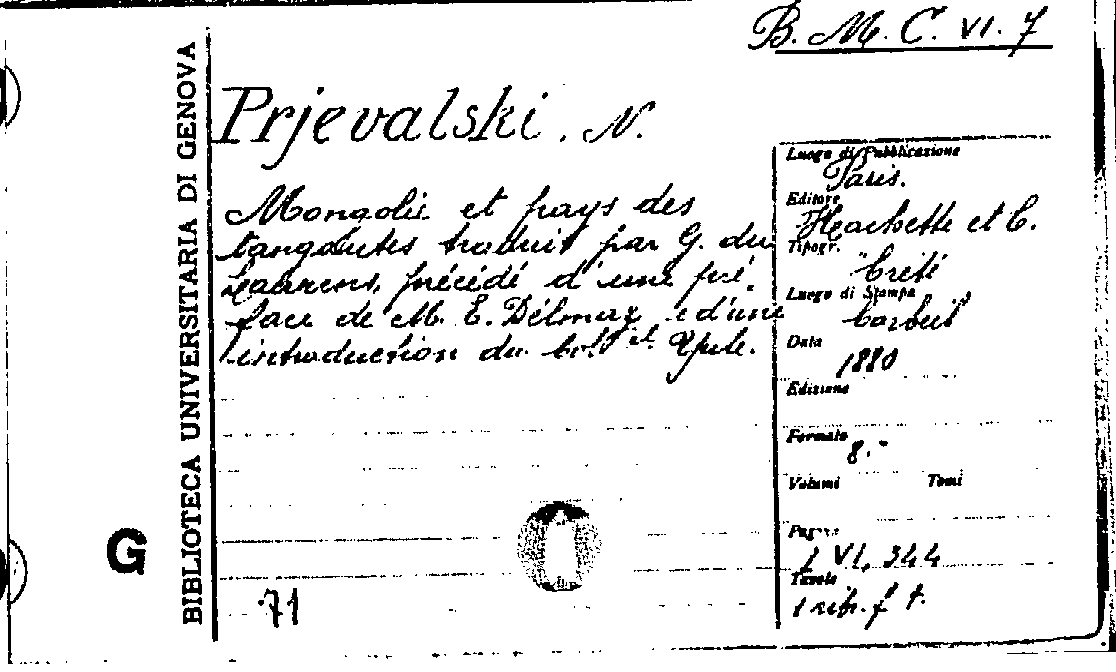 B. M. C. VI. 7
BIBLIOTECA UNIVERSITARIA DI GENOVA
Prjevalski. N.
Mongolie et pays des
tangoutes traduit par G. du
Laurens, précédé d'une pré
face de M. E. Délmar e d'une
introduction du Yule.
Luogo di Pubblicazione
Paris.
Editore
Hachette et C.
Tipogr.
Creté
Luogo di Stampa
Corbeil
Data
1880
Edizione
Formato
8.-
Volumi Tomi
Pagine
VI, 344
Tavole
1 f. t.
G
71